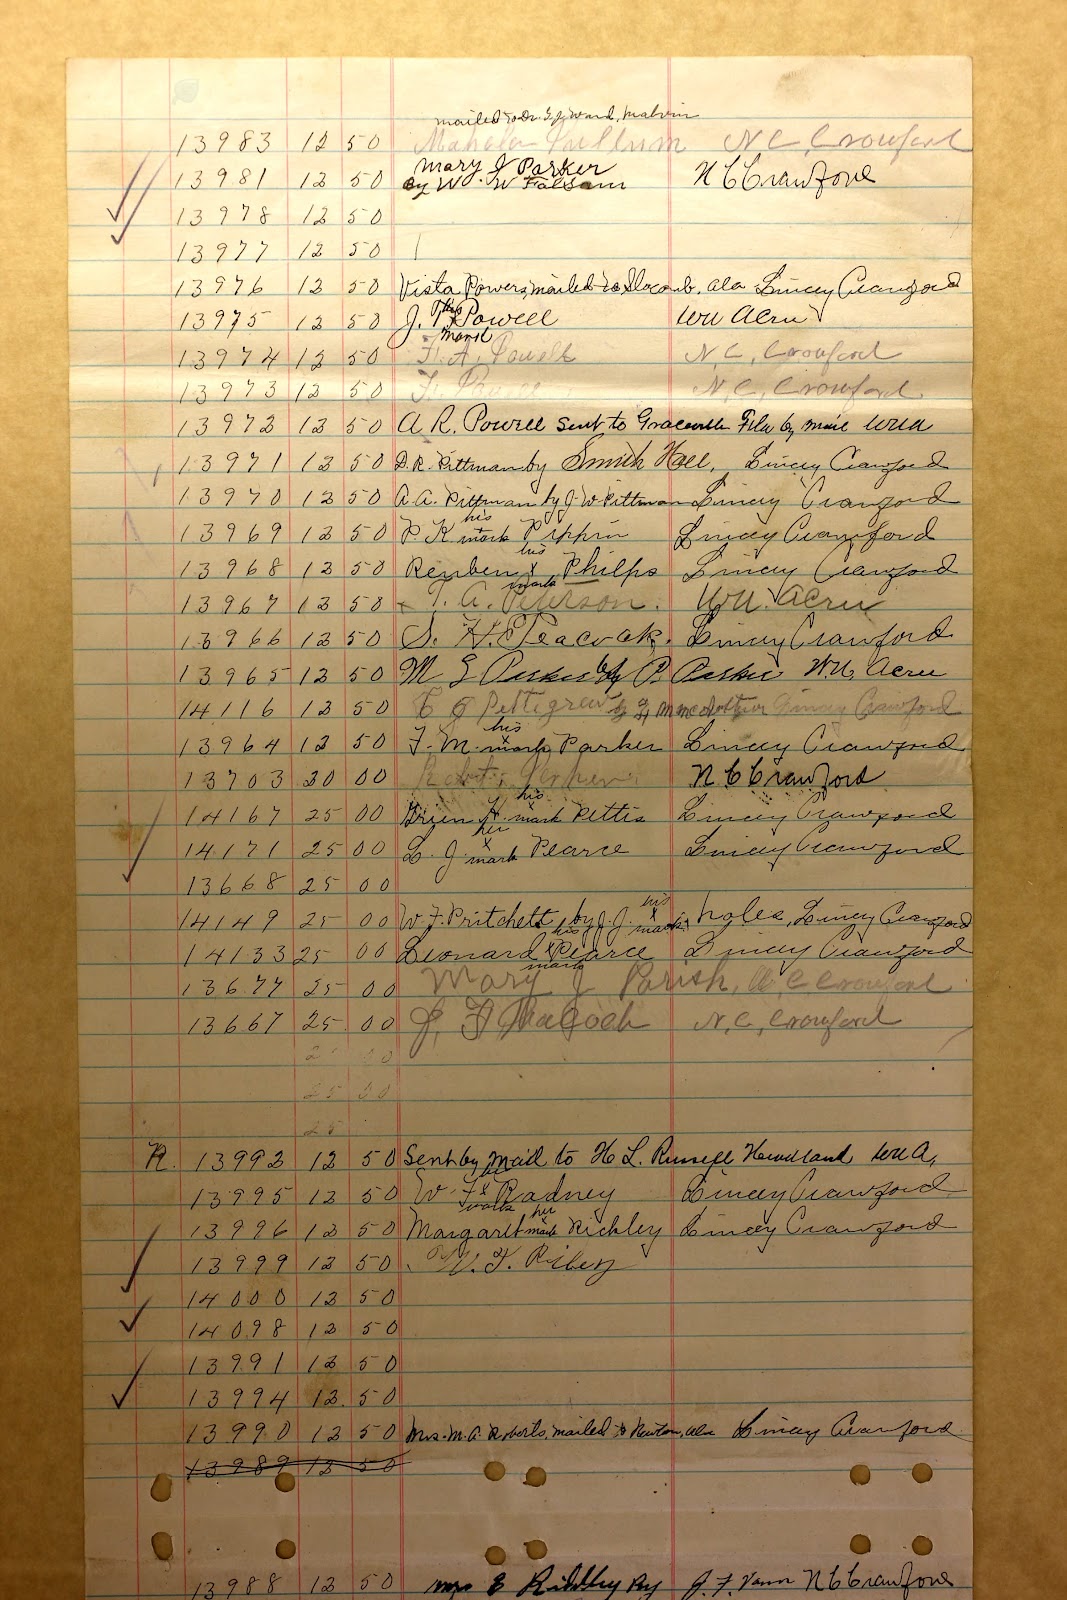 mailed to Dr. G J Ward, Malvin
13983 12 50 Mahala Pullum N C, Crawford
13981 12 50 Mary J Parker
By W. W Folsom N C Crawford
13978 12 50
13977 12 50
13976 12 50 Vista Powers, mailed to Slocomb, Ala Lincey Crawford
his
13975 12 50 J. T x Powell WU Acru
mark
13974 12 50 A, Powell N, C, Crawford
13973 12 50 N, C, Crawford
13972 12 50 A R. Powell sent to Graceville Fla by mail WUA
13971 12 50 D.R. Pittman by Smith Hall, Lincey Crawford
13970 12 50 A. A. Pittman by J. W Pittman Lincey Crawford
his
13969 12 50 P. K mark Pippin Lincey Crawford
his
13968 12 50 Reuben x Philps Lincey Crawford
mark
13967 12 50 x T. A. Peterson. WU. Acru
13966 12 50 S. H. Peacock. Lincey Crawford
13965 12 50 M E Parker by P. Parker WU, Acru
14116 12 50 Pettigrew by Lincey Crawford
his
13964 12 50 F. M. x mark Parker Lincey Crawford
13703 20 00 N C Crawford
his
14167 25 00 H. x mark Pettis Lincey Crawford
her
14171 25 00 L. J. x mark Pearce Lincey Crawford
13668 25 00
his
14149 25 00 W. F. Pritchett by J. J. x mark Lincey Crawford
his
14133 25 00 Leonard x Pearce Lincey Crawford
mark
13677 25 00 Mary J Parish, N C Crawford
13667 25 00 J, F N, C, Crawford
25 00
25 00
25
R. 13992 12 50 Sent by Mail to H L. Russell Headland WUA,
13995 12 50 W. F x Radney Lincey Crawford
mark
her
13996 12 50 Margaret x mark Richley Lincey Crawford
13999 12 50 W. F. Riley
14000 12 50
14098 12 50
13991 12 50
13994 12 50
13990 12 50 Mrs. M. A. Roberts, mailed to Newton, Ala Lincey Crawford
13989 12 50
13988 12 50 Mrs E Ridley By J. F. Vann N C Crawford